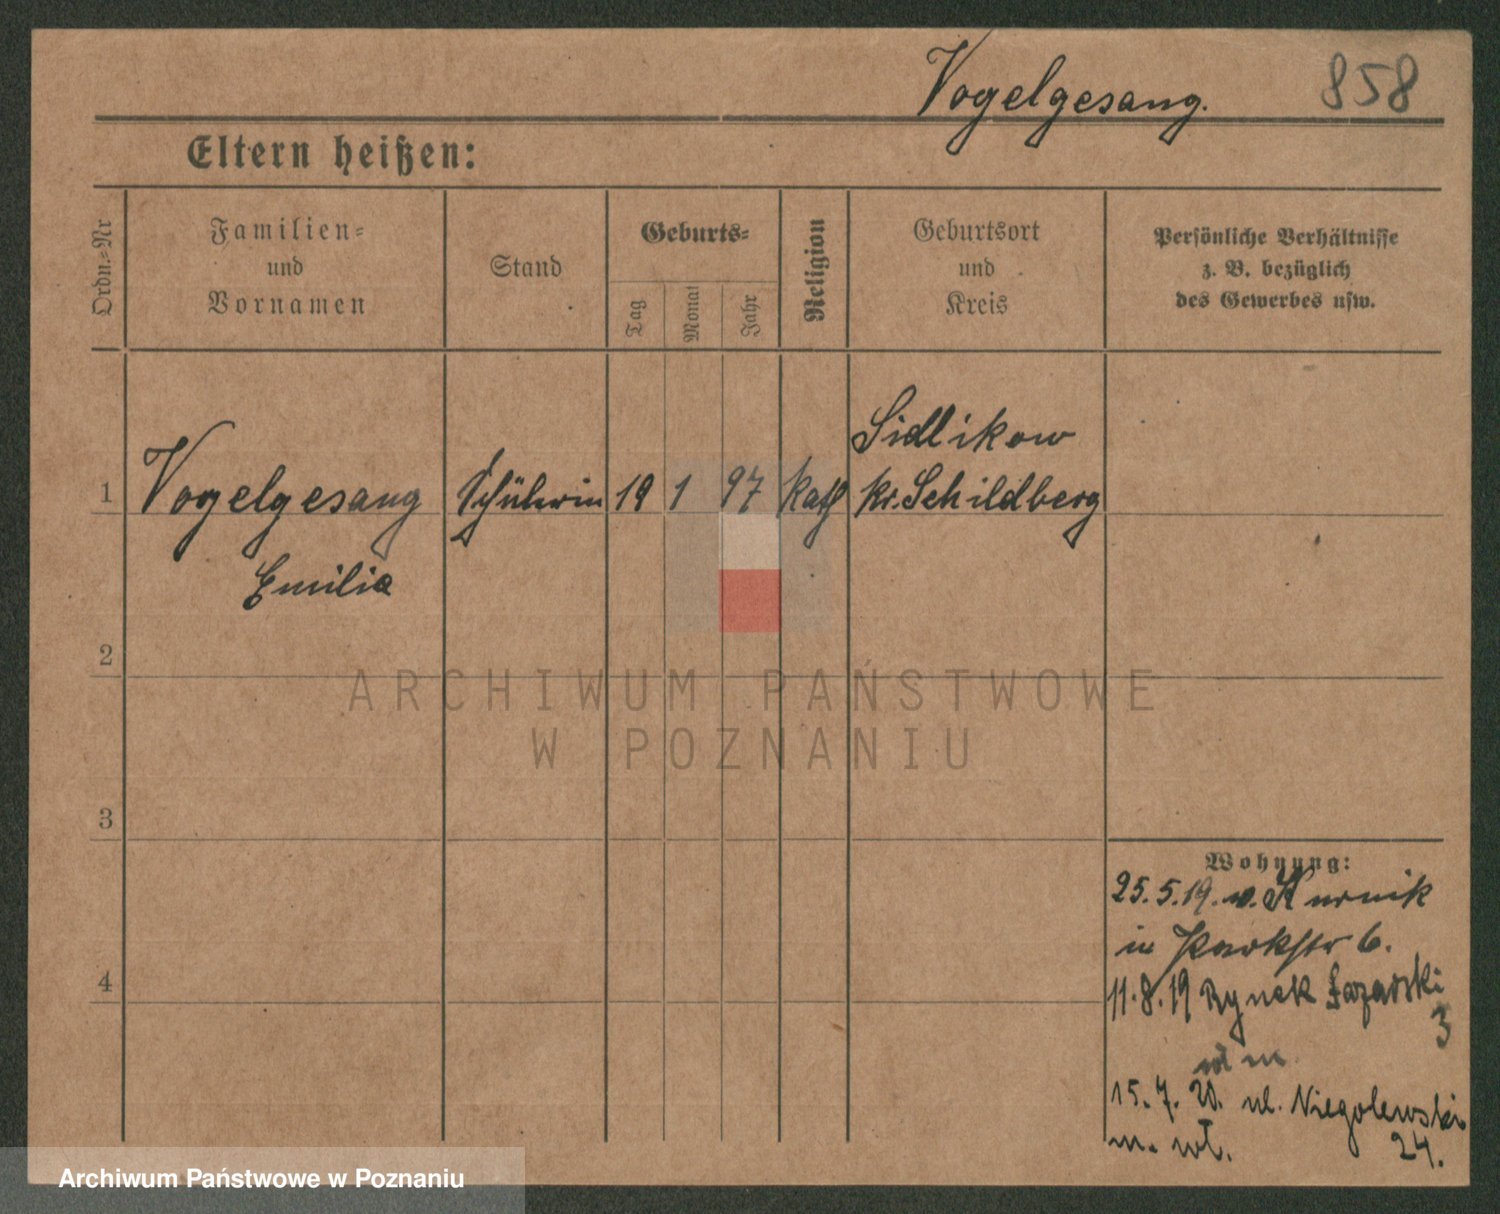 Vogelgesang.
858
Eltern heißen:
Ordn.-Nr
Familien-
und
Vornamen
Stand
Geburts-
Tag
Monat
Jahr
Religion
Geburtsort
und
Kreis
Persönliche Verhältnisse
z. B. bezüglich
des Gewerbes usw.
1
Vogelgesang
Emilia
Schülerin
19
1
97
kath
Sidlikow
kr. Schildberg
2
3
4
Wohnung:
25.5.19. v. Kurnik
in Parkstr 6.
11.8.19 Rynek Łazarski
3
wł m
15.7.20. ul. Niegolewski
24.
m. wł.
ARCHIWUM PAŃSTWOWE
W POZNANIU
Archiwum Państwowe w Poznaniu